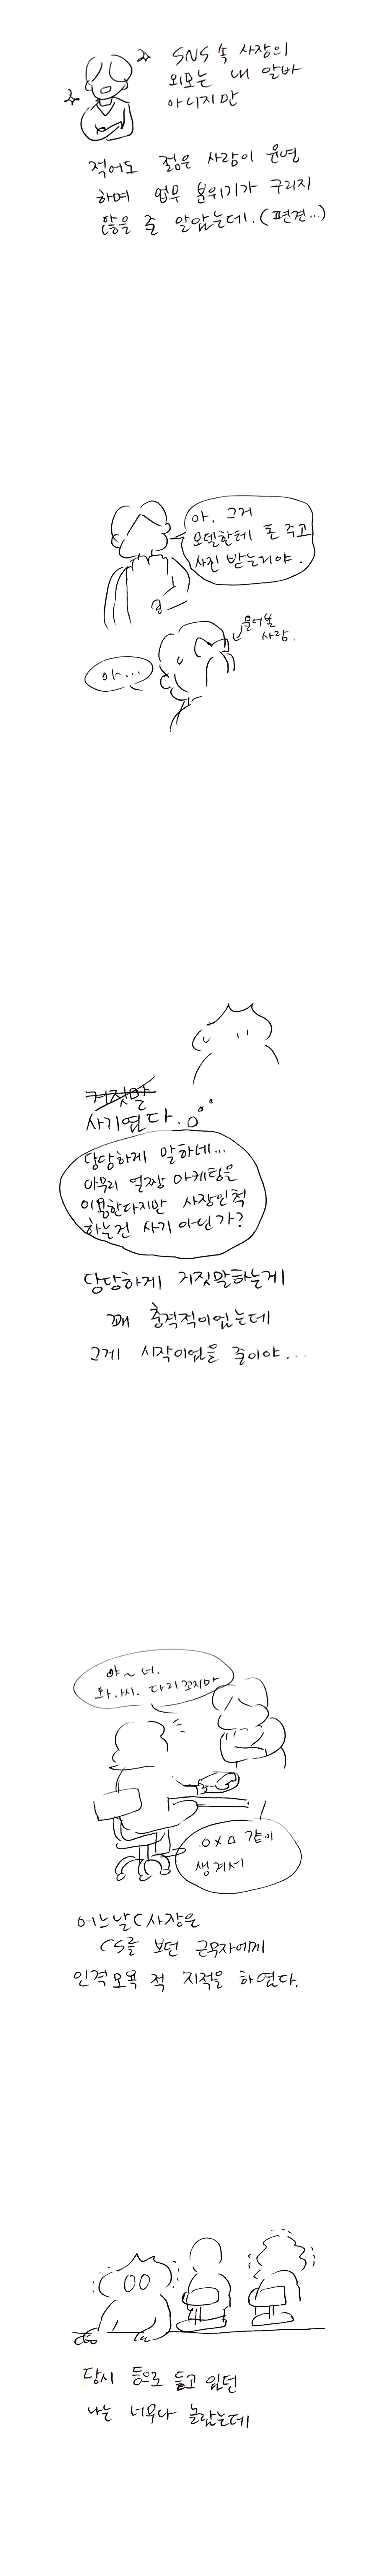 SNS 속 사장의
외모는 내 알바
아니지만
적어도 젊은 사람이 운영
하며 업무 분위기가 구리지
않을 줄 알았는데.(편견...)
아. 그거
모델한테 돈 주고
사진 받는거야.
물어본
사람.
아...
거짓말
사기였다.
당당하게 말하네...
아무리 얼짱 마케팅을
이용한다지만 사장인척
하는건 사기 아닌가?
당당하게 거짓말하는게
꽤 충격적이었는데
그게 시작이었을 줄이야...
야~ 너.
와.씨. 다리 꼬지마
O X △ 같이
생겨서
어느날 C사장은
CS를 보던 근무자에게
인격모욕 적 지적을 하였다.
당시 등으로 듣고 있던
나는 너무나 놀랐는데